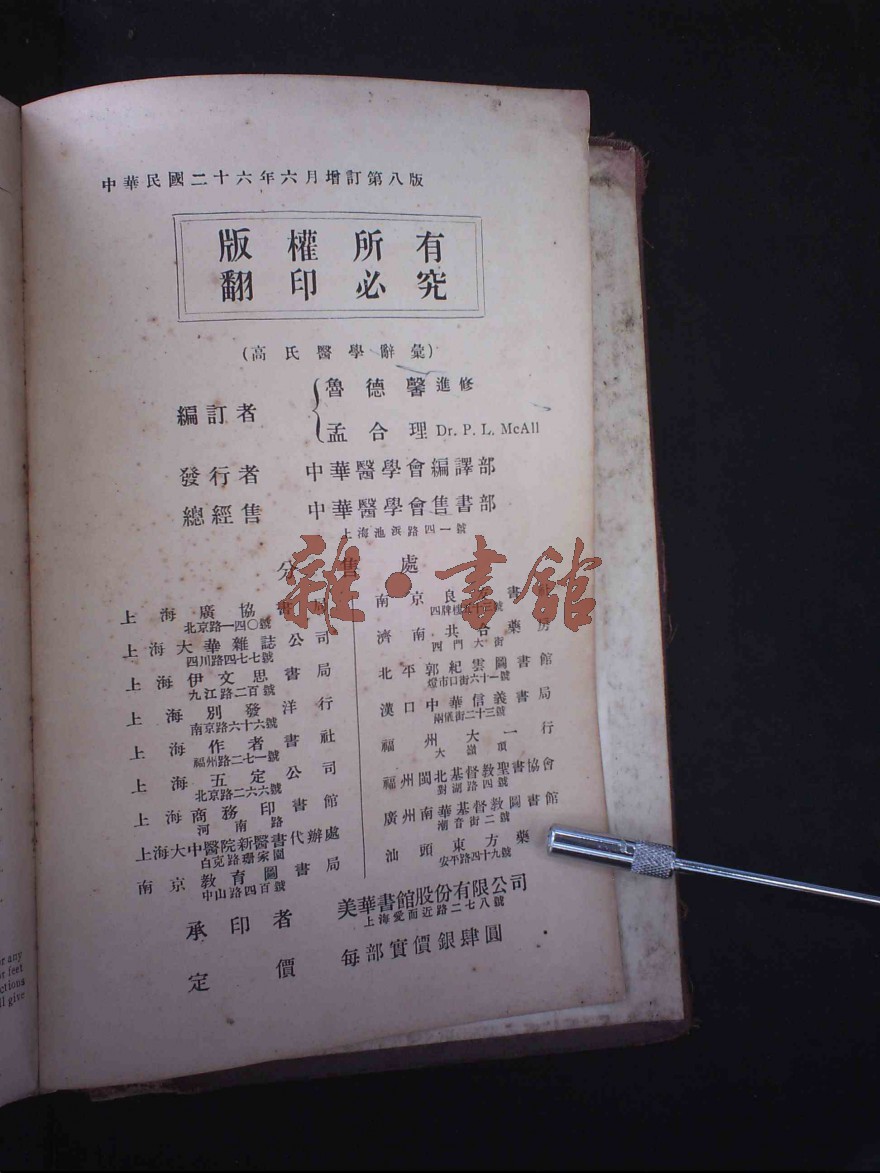 中華民國二十六年六月增訂第八版
版權所有
翻印必究
(高氏醫學辭彙)
編訂者
魯德馨進修
孟合理 Dr. P. L. McAll
發行者 中華醫學會編譯部
總經售 中華醫學會售書部
上海池浜路四一號
分售處
上海廣協書局
北京路一四〇號
上海大華雜誌公司
四川路四七七號
上海伊文思書局
九江路二百號
上海別發洋行
南京路六十六號
上海作者書社
福州路二七一號
上海五定公司
北京路二六六號
上海商務印書館
河南路
上海大中醫院新醫書代辦處
白克路珊家園
南京教育圖書局
中山路四百號
南京良友書社
濟南共合藥房
西門大街
北平郭紀雲圖書館
燈市口街六十一號
漢口中華信義書局
兩儀街二十三號
福州大一行
大嶺頂
福州閩北基督教聖書協會
對湖路四號
廣州南華基督教圖書館
潮音街二號
汕頭東方藥
安平路四十九號
承印者 美華書館股份有限公司
上海愛而近路二七八號
定價 每部實價銀肆圓
雜·書館
r any
ot feet
ctions
ll give